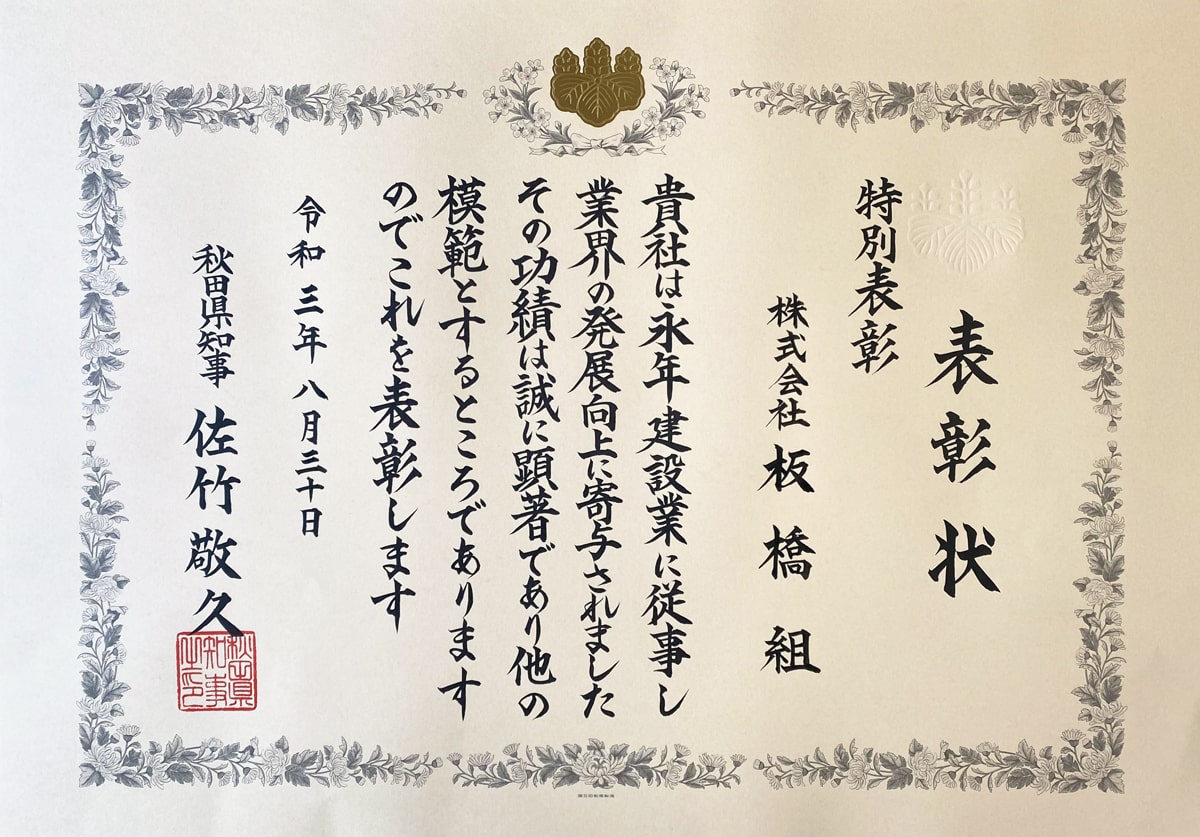 表彰状
特別表彰
株式会社 板橋組
貴社は永年建設業に従事し
業界の発展向上に寄与されました
その功績は誠に顕著であり他の
模範とするところであります
のでこれを表彰します
令和三年八月三十日
秋田県知事 佐竹敬久